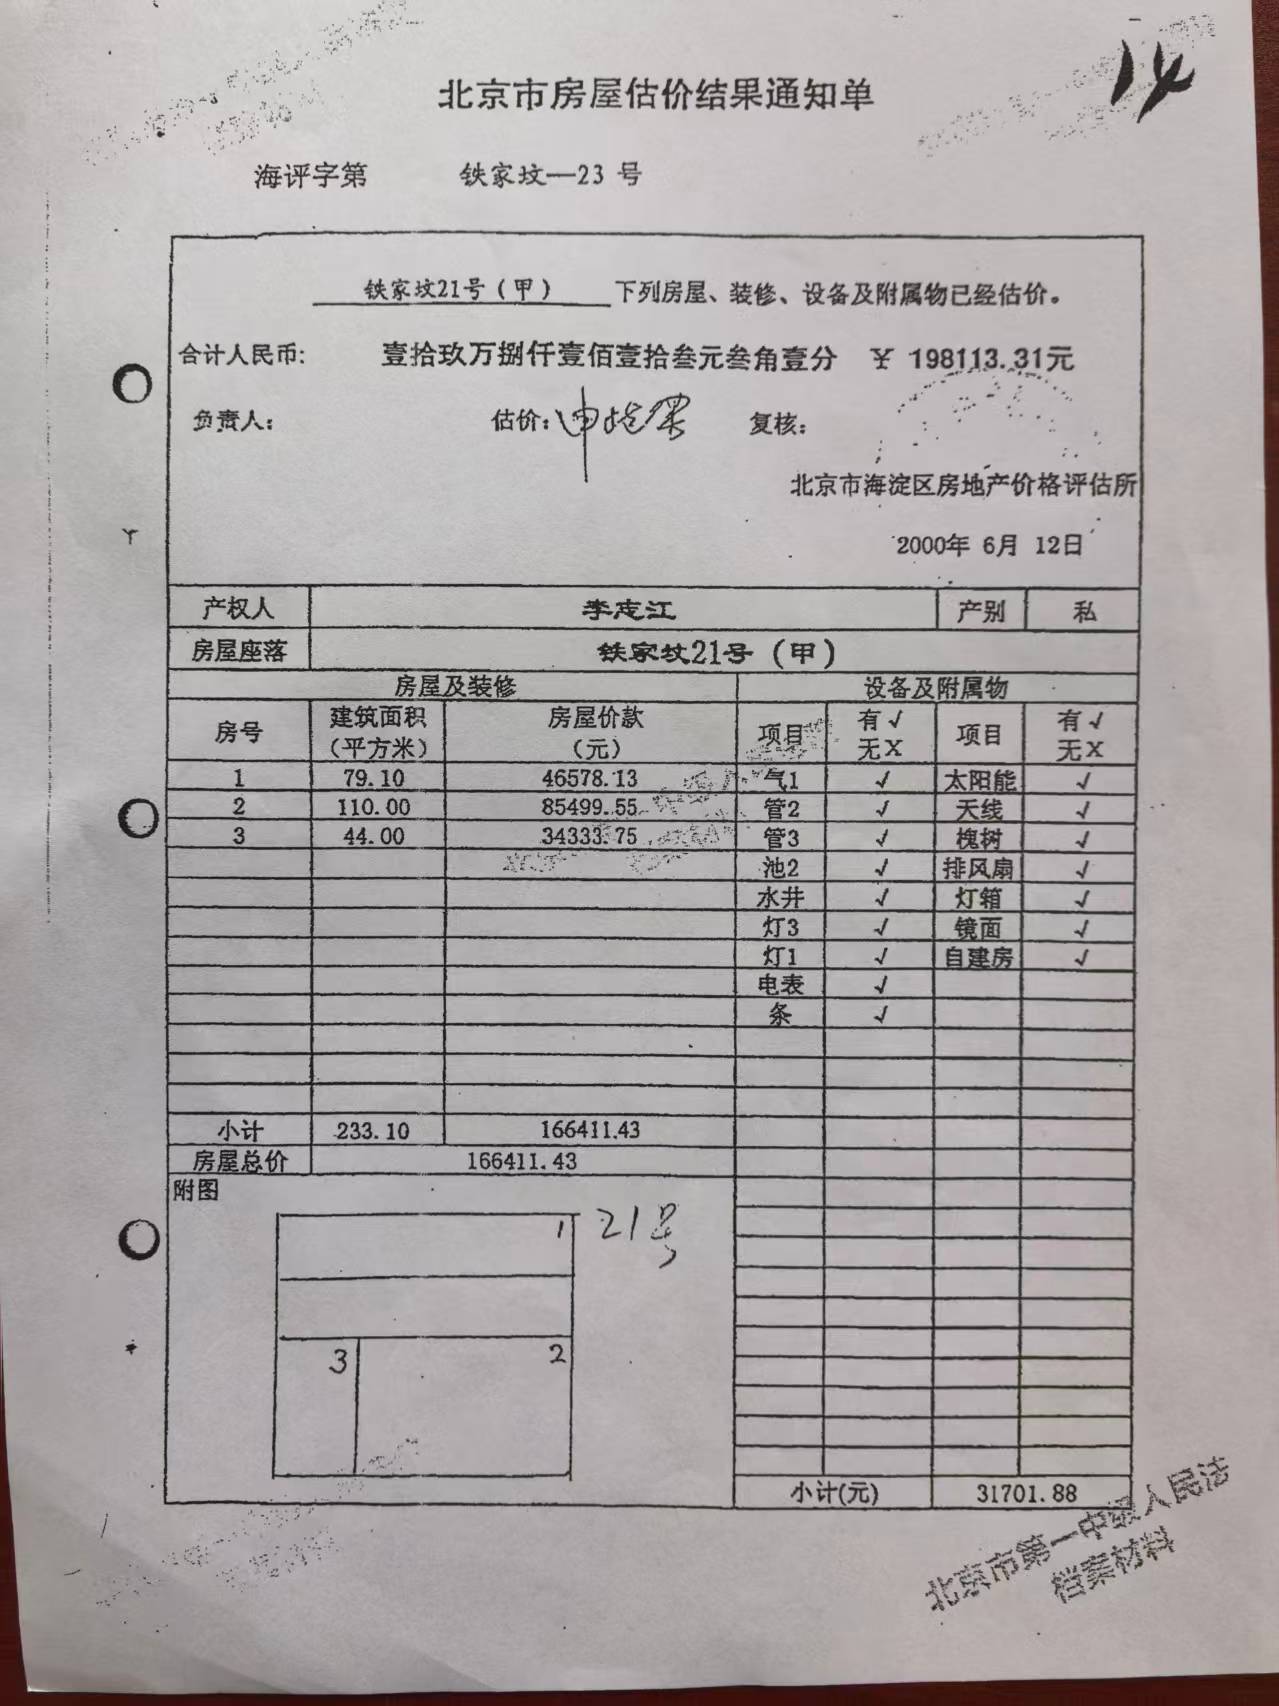 14
北京市房屋估价结果通知单
海评字第 铁家坟—23 号
铁家坟21号（甲） 下列房屋、装修、设备及附属物已经估价。
合计人民币: 壹拾玖万捌仟壹佰壹拾叁元叁角壹分 ￥ 198113.31元
负责人: 估价: 复核:
北京市海淀区房地产价格评估所
2000年 6月 12日
产权人 李志江 产别 私
房屋座落 铁家坟21号（甲）
房屋及装修 设备及附属物
房号 建筑面积（平方米） 房屋价款（元） 项目 有√无X 项目 有√无X
1 79.10 46578.13 气1 √ 太阳能 √
2 110.00 85499.55 管2 √ 天线 √
3 44.00 34333.75 管3 √ 槐树 √
池2 √ 排风扇 √
水井 √ 灯箱 √
灯3 √ 镜面 √
灯1 √ 自建房 √
电表 √
条 √
小计 233.10 166411.43
房屋总价 166411.43
附图
1 21号
3 2
小计(元) 31701.88
北京市第一中级人民法
档案材料